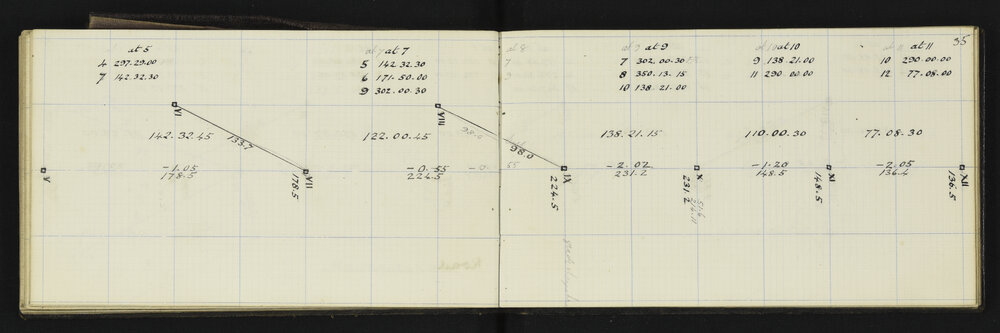 35
at 5
4 297.29.00
7 142.32.30
at 7
5 142.32.30
6 171.50.00
9 302.00.30
at 9
7 302.00.30
8 350.13.15
10 138.21.00
at 10
9 138.21.00
11 290.00.00
at 11
10 290.00.00
12 77.08.00
VI
VIII
142.32.45
133.7
122.00.45
98.0
98.0
138.21.15
110.00.30
77.08.30
V
-1.05
178.5
VII
178.5
-0.55
224.5
IX
224.5
-2.02
231.2
X
231.2
-1.20
148.5
XI
148.5
-2.05
136.4
XII
136.5